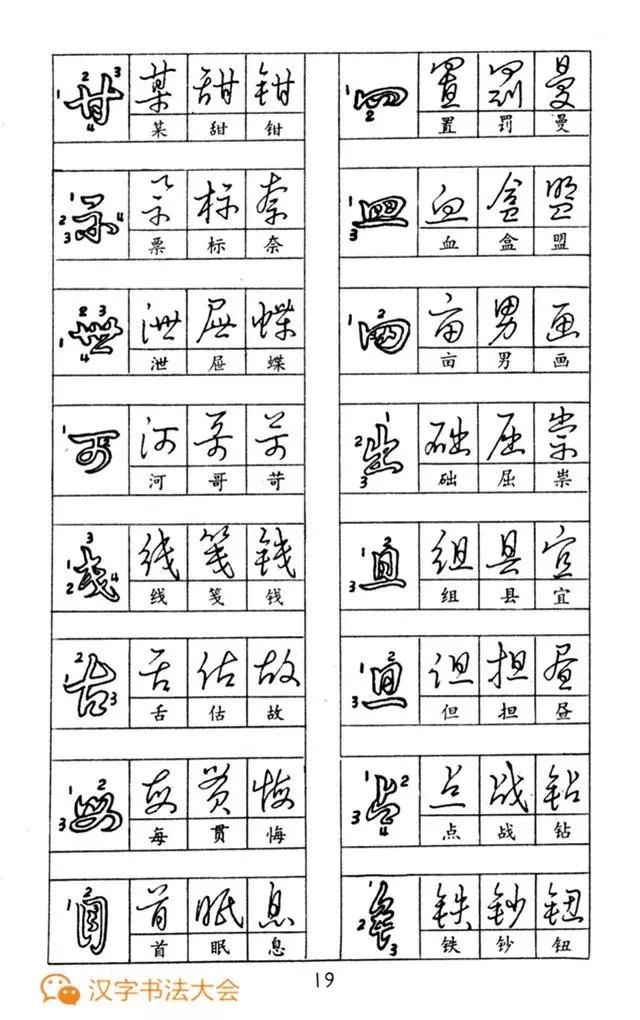 甘 某 甜 钳
某 甜 钳
示 票 标 奈
票 标 奈
世 泄 屉 蝶
泄 屉 蝶
可 河 哥 苛
河 哥 苛
戋 线 笺 钱
线 笺 钱
古 舌 估 故
舌 估 故
每 贯 悔
每 贯 悔
目 首 眠 息
首 眠 息
罒 置 罚 曼
置 罚 曼
皿 血 盒 盟
血 盒 盟
田 亩 男 画
亩 男 画
出 础 屈 祟
础 屈 祟
且 组 县 宜
组 县 宜
旦 但 担 昼
但 担 昼
占 点 战 钻
点 战 钻
钅 铁 钞 钮
铁 钞 钮
19
汉字书法大会